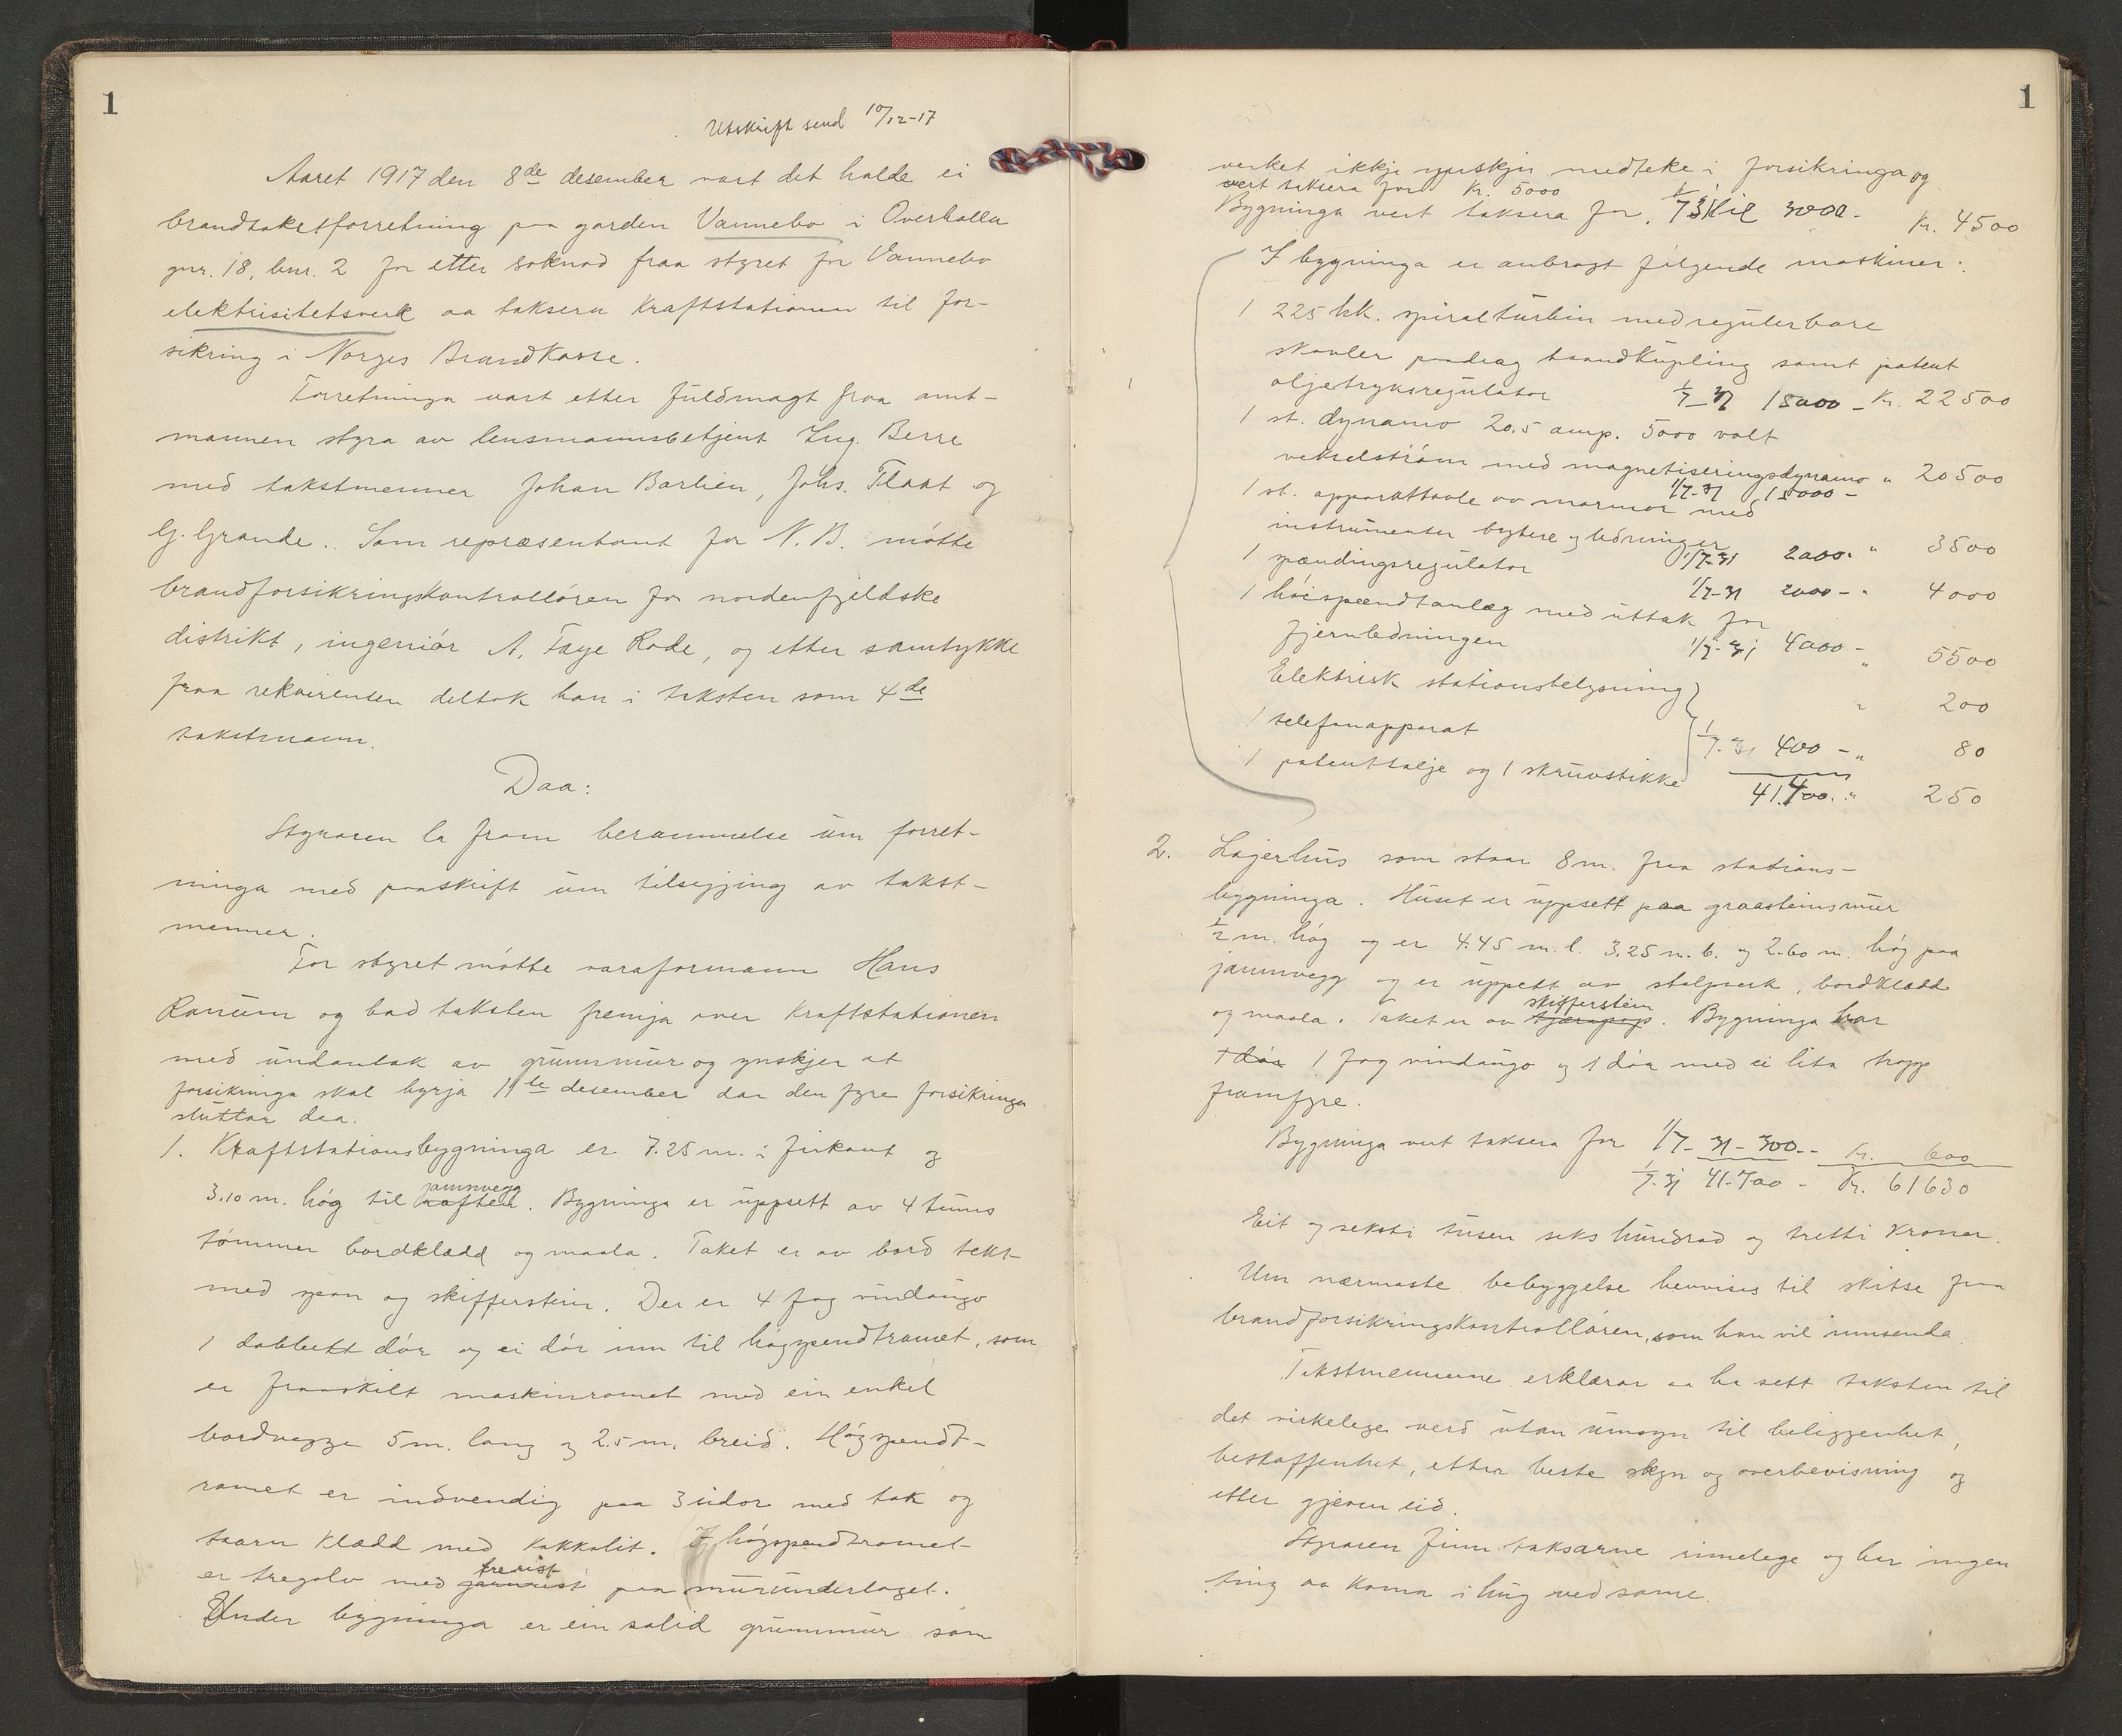 1
Utskrift send 10/12-17
Aaret 1917 den 8de desember vart det halde ei
brandtakstforretning paa garden Vannebo i Overhalla
gnr. 18, bnr. 2 for etter søknad fraa styret for Vannebo
elektrisitetsverk aa taksera kraftstationen til for-
sikring i Norges Brandkasse.
Forretninga vart etter fuldmagt fraa amt-
mannen styra av lensmannsbetjent Ing. Berre
med takstmenner Johan Barlien, Johs. Flaat og
G. Grande. Som repræsentant for N. B. møtte
brandforsikringskontrolløren for nordenfjeldske
distrikt, ingeniør A. Faye Rode, og etter samtykke
fraa rekvirenten deltok han i taksten som 4de
takstmann.
Daa:
Styraren la fram berammelse um forret-
ninga med paaskrift um tilsegjing av takst-
menner.
For styret møtte varaformann Hans
Ranum og bad taksten fremja over kraftstationen
med undantak av grunnmur og ynskjer at
forsikringa skal byrja 11te desember daa den fyre forsikringa
sluttar daa.
1. Kraftstationsbygninga er 7.25 m. i firkant og
jamnvegg
3.10 m. høg til raftet. Bygninga er uppsett av 4 tums
tømmer bordklædd og maala. Taket er av bord tekt
med spon og skifferstein. Der er 4 fag vindaugo
1 dobbelt dør og ei dør inn til høgspendtromet, som
er fraaskilt maskinromet med ein enkel
bordvegge 5 m. lang og 2.5 m. breid. Høgspendt-
romet er indvendig paa 3 sidor med tak og
taarn klædd med kakkolit. I høgspendtromet
trerist
er tregolv med jarnrist paa murunderlaget.
Under bygninga er ein solid grunnmur som
1
verket ikkje ynskjer medteke i forsikringa og
vert taksera for Kr. 5000
Bygninga vert taksera for 1/7 31 til 3000. Kr. 4500
I bygninga er anbragt følgende maskiner:
1 225 hk. spiralturbin med regulerbare
skovler paadrag baandkupling samt patent
oljetryksregulator 1/7 31 15000 - Kr. 22500
1 st. dynamo 20.5 amp. 5000 volt
vekselstrøm med magnetiseringsdynamo " 20500
1/7-31 15000 -
1 st. apparattavle av marmor med
instrumenter bytere og ledninger 1/7-31 2000. " 3500
1 spændingsregulator 1/7-31 2000 - " 4000
1 høispændtanlæg med uttak for
fjernledningen 1/7-31 4000 - " 5500
Elektrisk stationsbelysning " 200
1 telefonapparat 1/7-31 400 - " 80
1 patenttalje og 1 skruvstikke 41.400. " 250
2. Lagerhus som staar 8 m. fraa stations-
bygninga. Huset er uppsett paa graasteinsmur
1/2 m. høg og er 4.45 m. l. 3.25 m. b. og 2.60 m. høg paa
jamnvegg og er uppsett av stolpverk, bordklædd
skifferstein
og maala. Taket er av tjærapap. Bygninga har
1 dør 1 fag vindaugo og 1 dør med ei lita tropp
framfyre.
Bygninga vert taksera for 1/7-31-300.- Kr. 600
1/7-31 41.700 - Kr. 61630
Eit og seksti tusen seks hundrad og tretti kroner.
Um nærmaste bebyggelse henvises til skitse fraa
brandforsikringskontrolløren, som han vil innsenda.
Takstmennerne erklærar aa ha sett taksten til
det virkelege verd utan umsyn til beliggenhet,
beskaffenhet, etter beste skyn og overbevisning og
etter gjeven eid.
Styraren finn taksarne rimelege og har ingen
ting aa koma i hug ved same.